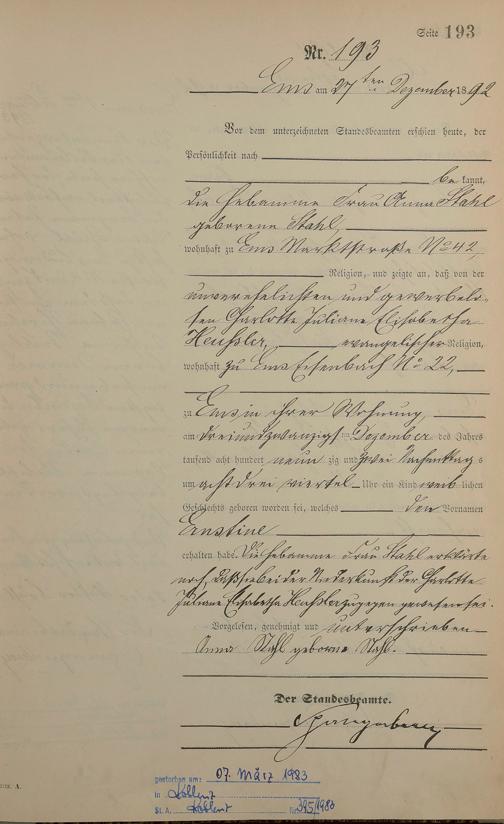 Seite 193
Nr. 193
Ems am 27ten Dezember 1892
Vor dem unterzeichneten Standesbeamten erschien heute, der
Persönlichkeit nach
bekannt,
die Hebamme Frau Anna Stahl
geborene Stahl,
wohnhaft zu Ems Marktstraße No 42,
Religion, und zeigte an, daß von der
unverehelichten und gewerbelo-
sen Charlotte Juliane Elisabetha
Heußler, evangelischer Religion,
wohnhaft zu Ems Eisenbach No 22,
zu Ems in ihrer Wohnung,
am dreiundzwanzigsten Dezember des Jahres
tausend acht hundert neunzig und zwei Nachmittags
um acht drei viertel Uhr ein Kind weiblichen
Geschlechts geboren worden sei, welches den Vornamen
Ernstine
erhalten habe. Die Hebamme Frau Stahl erklärte
noch, daß sie bei der Niederkunft der Charlotte
Juliane Elisabetha Heußler zugegen gewesen sei.
Vorgelesen, genehmigt und unterschrieben
Anna Stahl geborne Stahl.
Der Standesbeamte.
gestorben am: 07. März 1983
in Koblenz
St. A. Koblenz Nr. 395/1983